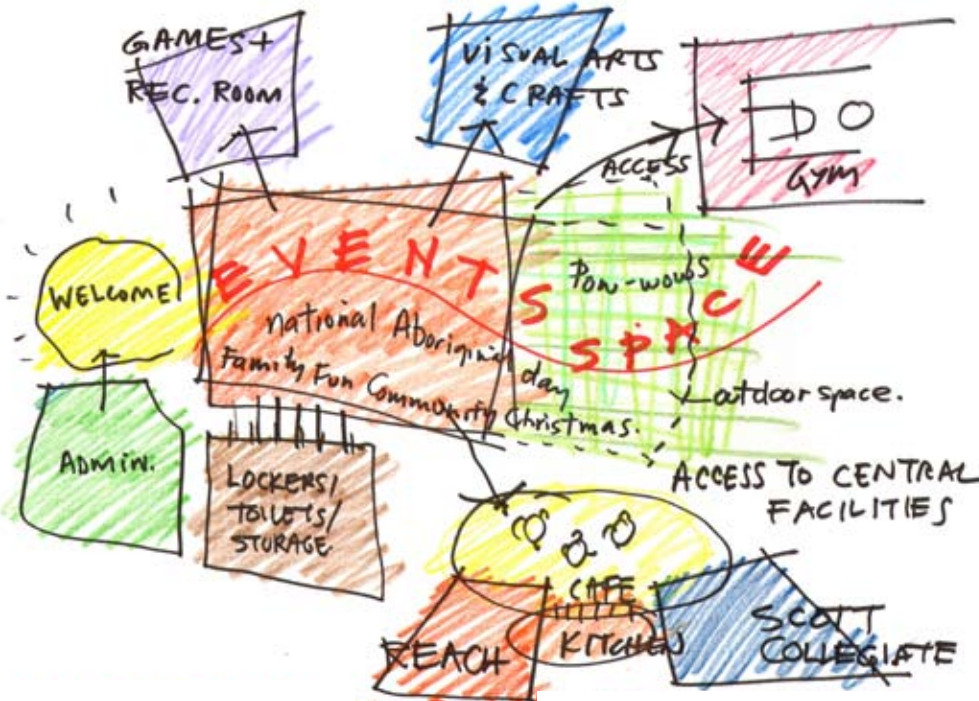 GAMES +
REC. ROOM
VISUAL ARTS
& CRAFTS
ACCESS
GYM
WELCOME
EVENT SPACE
Pow-wows
national Aboriginal day
Family Fun Community Christmas.
outdoor space.
ADMIN.
LOCKERS/
TOILETS/
STORAGE
ACCESS TO CENTRAL
FACILITIES
CAFE
KITCHEN
REACH
SCOTT
COLLEGIATE